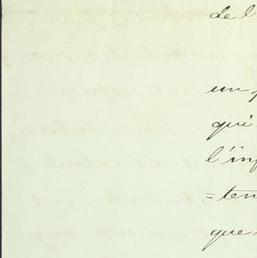 de l
un
qui
l'in
=ten
que